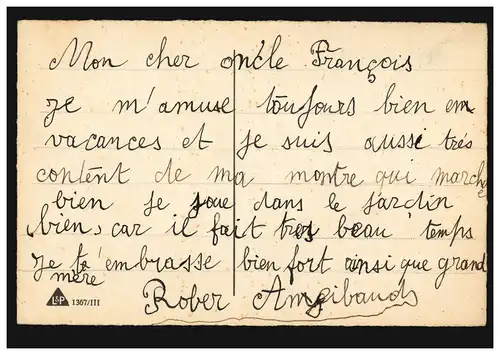 Mon cher oncle François
Je m'amuse toujours bien em
vacances et je suis aussi très
content de ma montre qui marche
bien je joue dans le jardin
bien, car il fait tres beau temps
Je t'embrasse bien fort ainsi que grand
mère
Rober Angibaud
L&P 1367/III